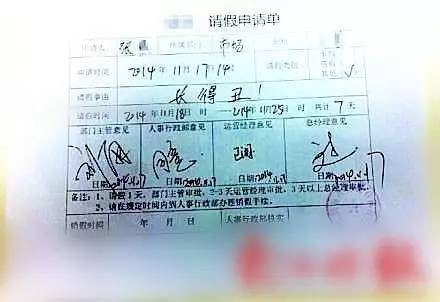 请假申请单
申请人 张 所属部门 市场
申请时间 2014年11月17日14时 请假类别
请假事由 长得丑!
请假时间 2014年11月18日 时—2014年11月25日 时 共计7天
部门主管意见 人事行政部意见 运营经理意见 总经理意见
日期:2014.11.17 日期:2014.11.17 日期:2014.11.17 日期:2014.11.17
备注:1、请假1天,部门主管审批,2-3天运营经理审批,3天以上总经理审批。
2、请在规定时间内到人事行政部办理销假手续。
销假时间 年 月 日 人事行政部核实